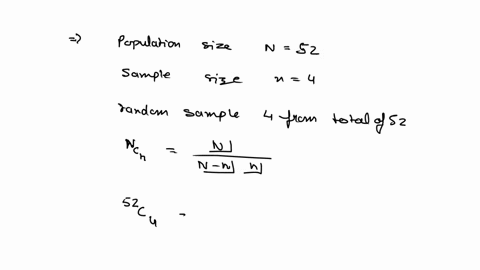 => Population size N = 52
Sample size n = 4
random sample 4 from total of 52
N_C_n = N! / (N-n)! n!
⁵²C₄ =